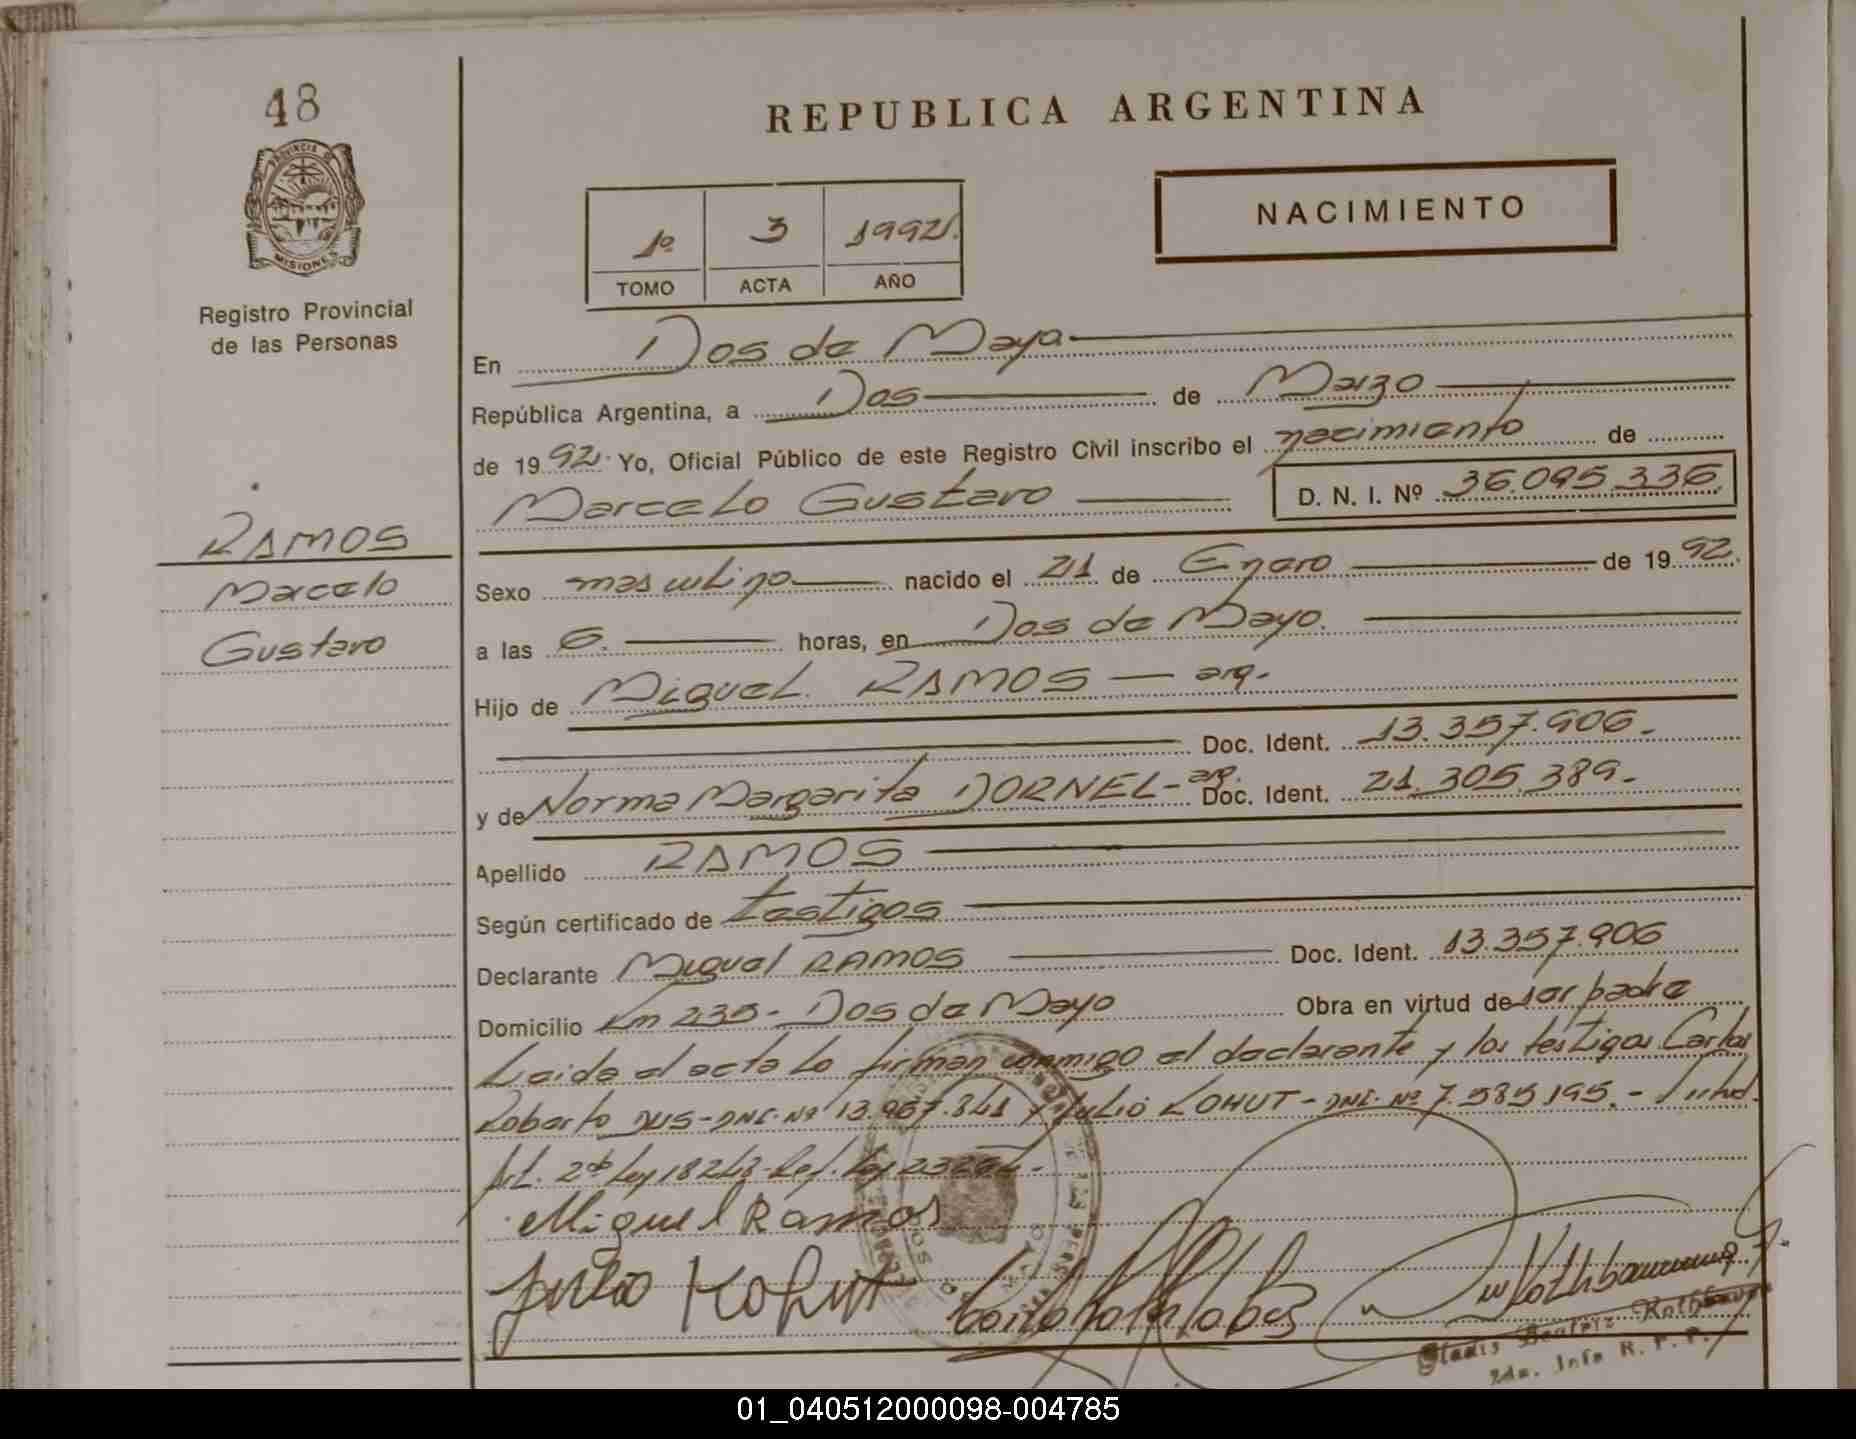 48
REPUBLICA ARGENTINA
NACIMIENTO
1º 3 1992.
TOMO ACTA AÑO
PROVINCIA DE
MISIONES
Registro Provincial
de las Personas
En Dos de Mayo
República Argentina, a Dos de Marzo
de 1992. Yo, Oficial Público de este Registro Civil inscribo el nacimiento de
Marcelo Gustavo D. N. I. Nº 36.095.336.
RAMOS
Marcelo
Gustavo
Sexo masculino nacido el 21 de Enero de 1992.
a las 6. horas, en Dos de Mayo.
Hijo de Miguel RAMOS — arg.
Doc. Ident. 13.357.906.-
y de Norma Margarita DORNEL- arg. Doc. Ident. 21.305.389.-
Apellido RAMOS
Según certificado de testigos
Declarante Miguel RAMOS Doc. Ident. 13.357.906
Domicilio Km 235- Dos de Mayo Obra en virtud de ser padre
Leida el acta lo firman conmigo el declarante y los testigos Carlos
Roberto DNI-Nº 13.967.841 y Julio KOHUT- DNI-Nº 7.585.195.-
Art. 2do Ley 18248- Ley
Miguel Ramos
Julio Kohut
Gladis Beatriz Rothbaum
R. P. P.
01_040512000098-004785